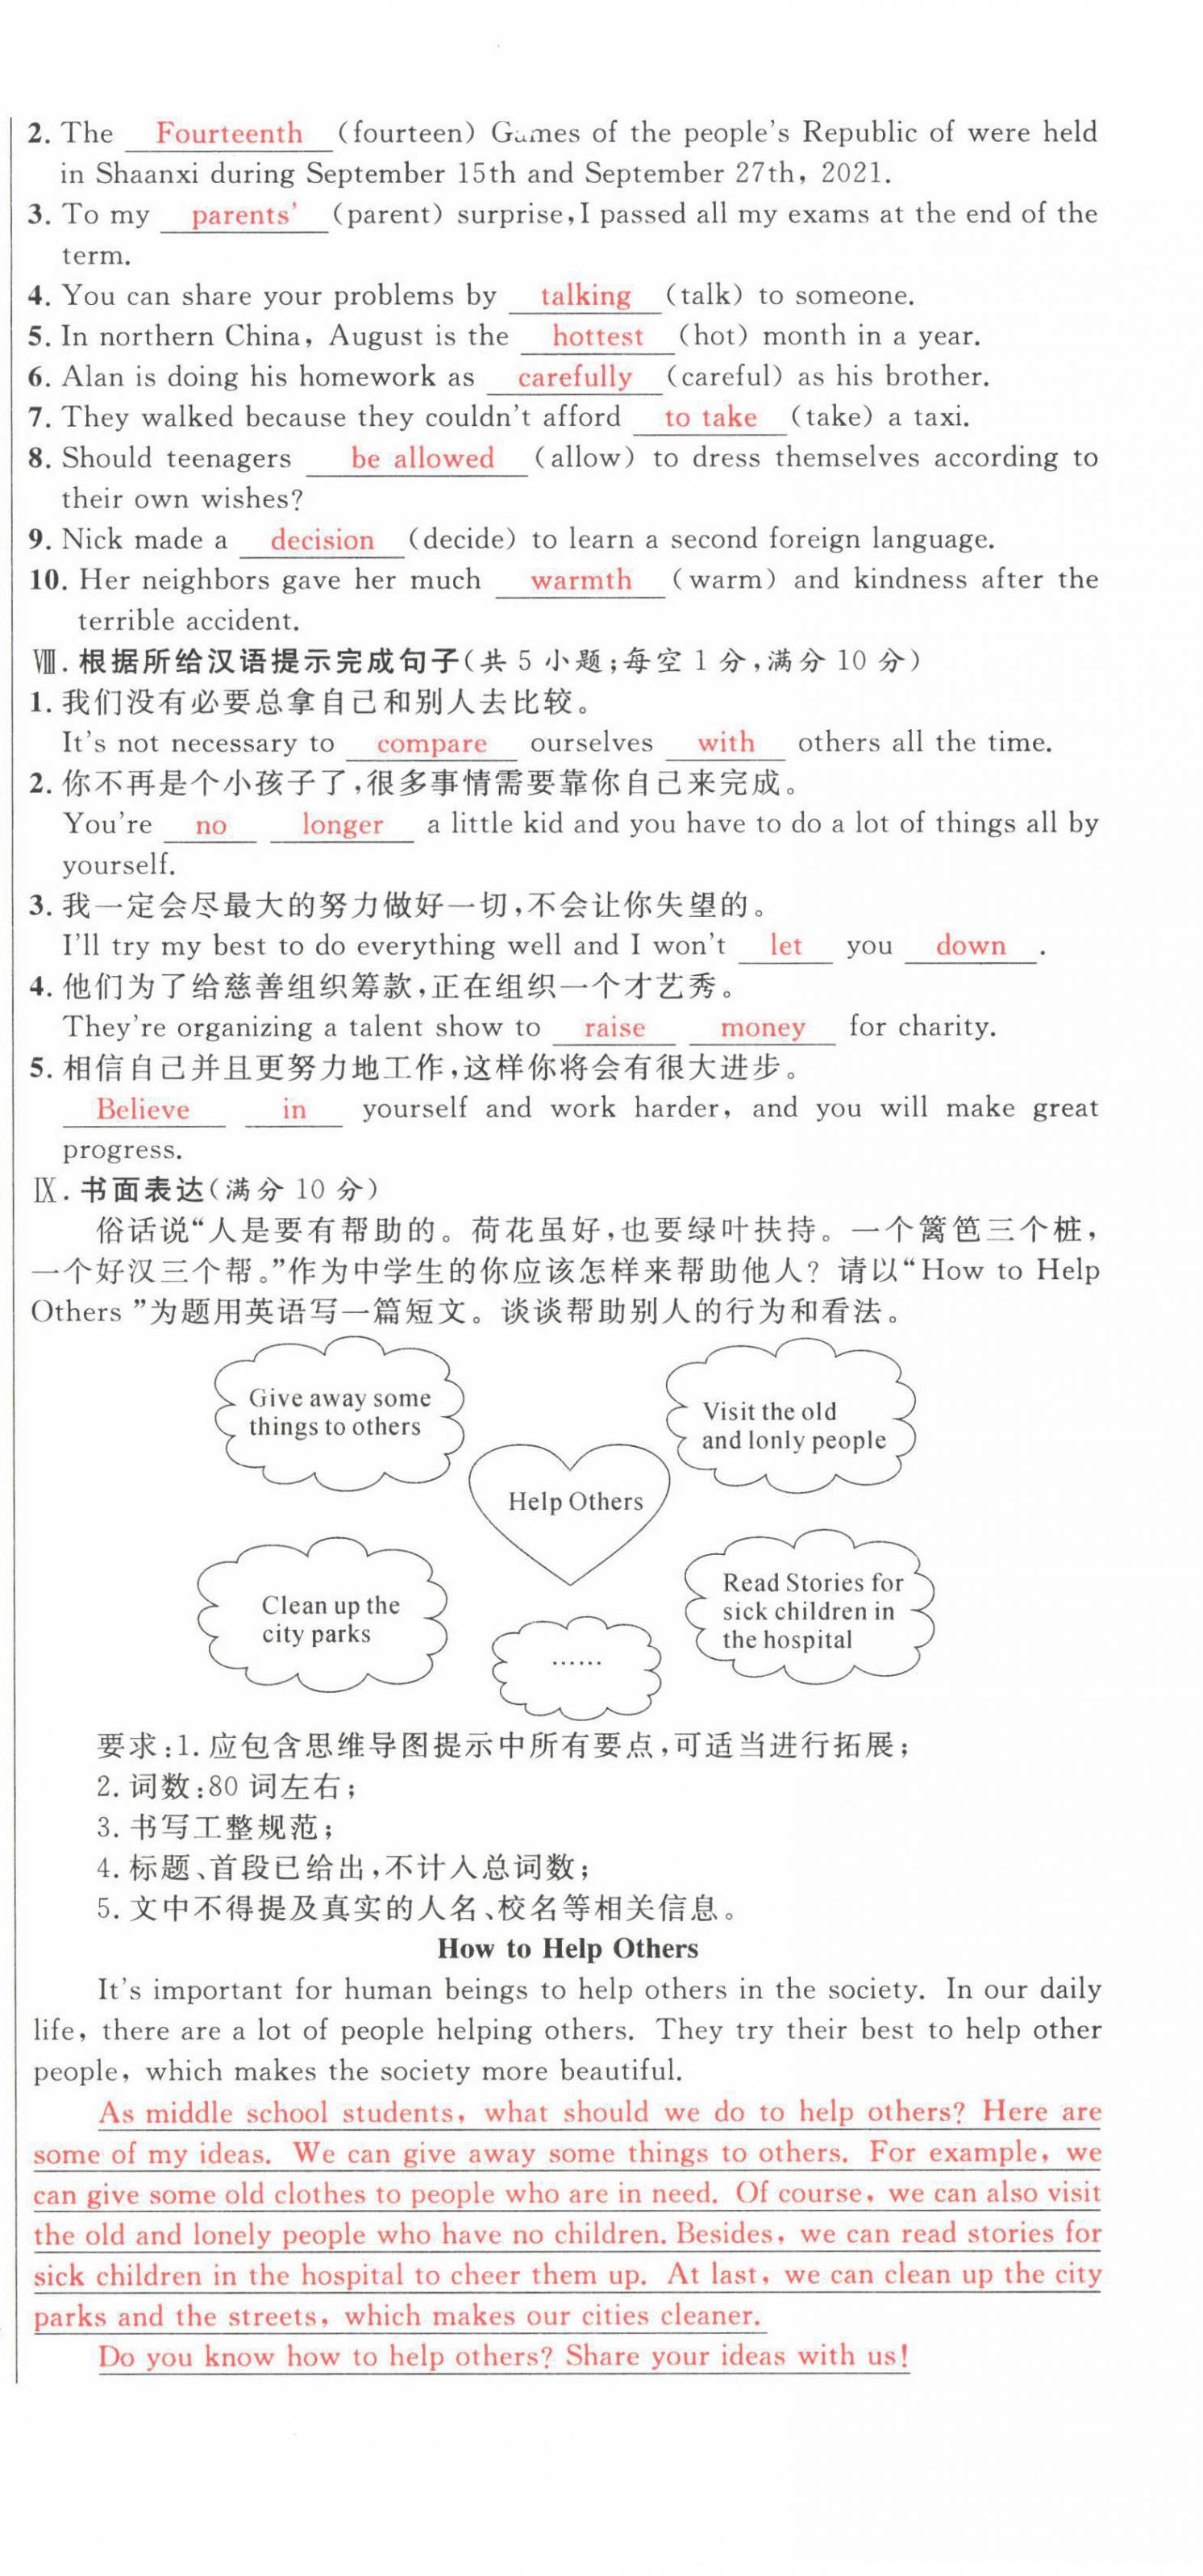 2. The Fourteenth (fourteen) Games of the people's Republic of were held
in Shaanxi during September 15th and September 27th, 2021.
3. To my parents' (parent) surprise, I passed all my exams at the end of the
term.
4. You can share your problems by talking (talk) to someone.
5. In northern China, August is the hottest (hot) month in a year.
6. Alan is doing his homework as carefully (careful) as his brother.
7. They walked because they couldn't afford to take (take) a taxi.
8. Should teenagers be allowed (allow) to dress themselves according to
their own wishes?
9. Nick made a decision (decide) to learn a second foreign language.
10. Her neighbors gave her much warmth (warm) and kindness after the
terrible accident.
Ⅷ. 根据所给汉语提示完成句子(共 5 小题;每空 1 分,满分 10 分)
1. 我们没有必要总拿自己和别人去比较。
It's not necessary to compare ourselves with others all the time.
2. 你不再是个小孩子了,很多事情需要靠你自己来完成。
You're no longer a little kid and you have to do a lot of things all by
yourself.
3. 我一定会尽最大的努力做好一切,不会让你失望的。
I'll try my best to do everything well and I won't let you down .
4. 他们为了给慈善组织筹款,正在组织一个才艺秀。
They're organizing a talent show to raise money for charity.
5. 相信自己并且更努力地工作,这样你将会有很大进步。
Believe in yourself and work harder, and you will make great
progress.
Ⅸ. 书面表达(满分 10 分)
俗话说“人是要有帮助的。荷花虽好,也要绿叶扶持。一个篱笆三个桩,
一个好汉三个帮。”作为中学生的你应该怎样来帮助他人? 请以“How to Help
Others ”为题用英语写一篇短文。谈谈帮助别人的行为和看法。
Give away some
things to others
Visit the old
and lonly people
Help Others
Clean up the
city parks
Read Stories for
sick children in
the hospital
……
要求:1. 应包含思维导图提示中所有要点,可适当进行拓展;
2. 词数:80 词左右;
3. 书写工整规范;
4. 标题、首段已给出,不计入总词数;
5. 文中不得提及真实的人名、校名等相关信息。
How to Help Others
It's important for human beings to help others in the society. In our daily
life, there are a lot of people helping others. They try their best to help other
people, which makes the society more beautiful.
As middle school students, what should we do to help others? Here are
some of my ideas. We can give away some things to others. For example, we
can give some old clothes to people who are in need. Of course, we can also visit
the old and lonely people who have no children. Besides, we can read stories for
sick children in the hospital to cheer them up. At last, we can clean up the city
parks and the streets, which makes our cities cleaner.
Do you know how to help others? Share your ideas with us!